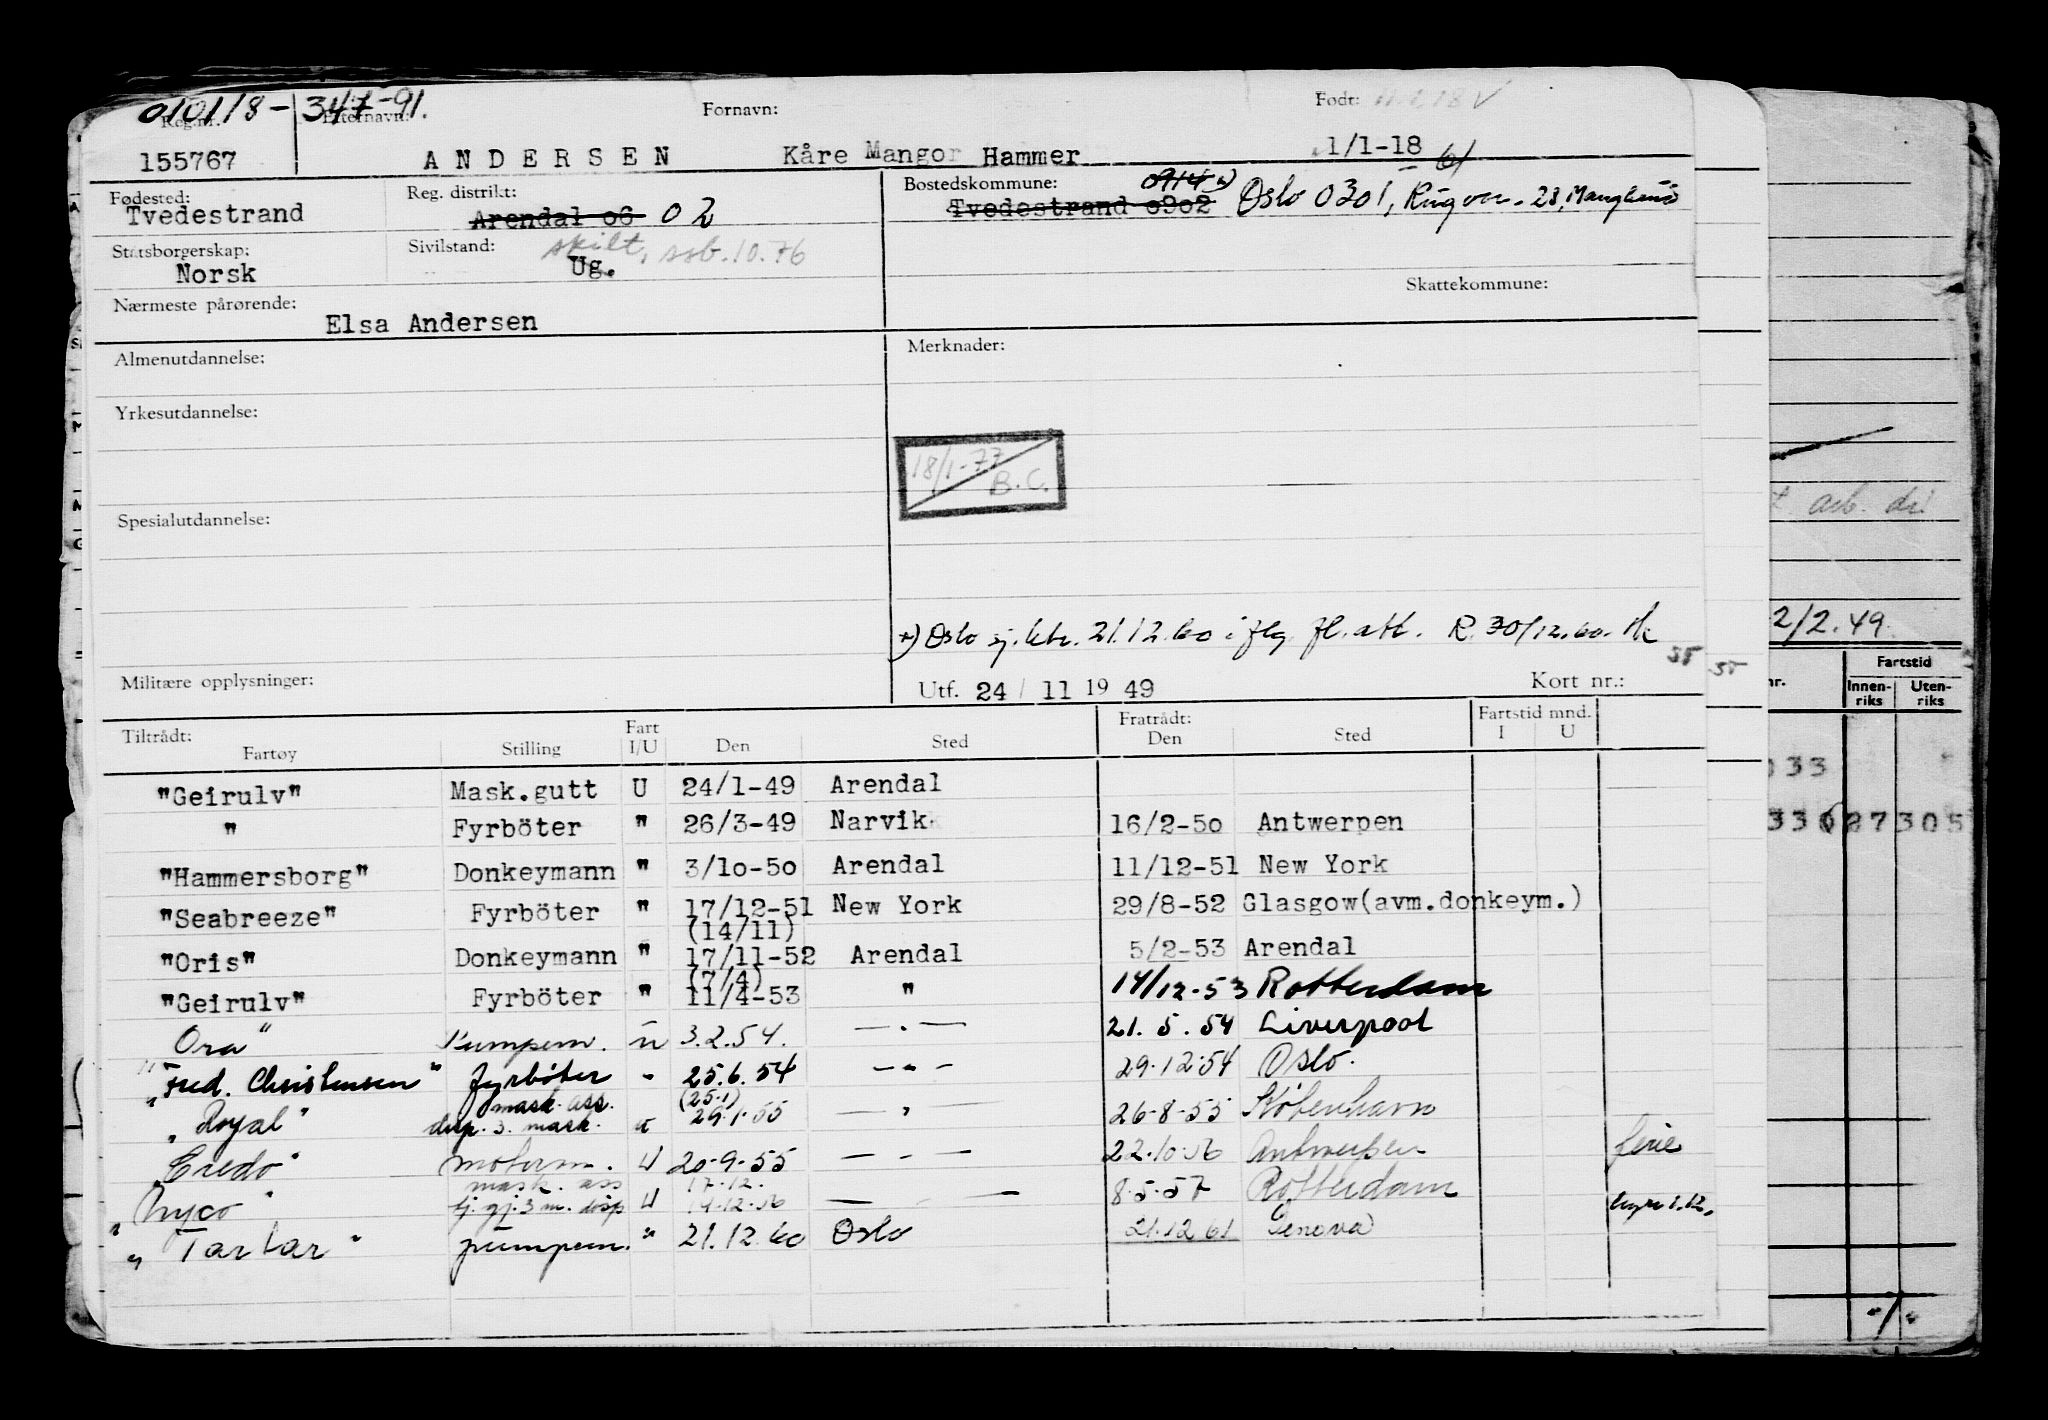 010118-347-91.
Reg.nr. Etternavn: Fornavn: Født:
155767 ANDERSEN Kåre Mangor Hammer 1/1-18
Fødested: Reg. distrikt: Bostedskommune: 0914 *)
Tvedestrand Arendal 06 02 Tvedestrand 0902 Oslo 0301, Ringvn. 23,
Statsborgerskap: Sivilstand: skilt, ssb. 10.76
Norsk Ug.
Skattekommune:
Nærmeste pårørende:
Elsa Andersen
Almenutdannelse: Merknader:
Yrkesutdannelse:
18/1-77
B.C.
Spesialutdannelse:
arb.
*) Oslo sj.ktr. 21.12.60 i flg. fl. att. R. 30/12.60.
2/2.49
Militære opplysninger: Utf. 24/11 1949 Kort nr.:
Tiltrådt: Fart Fratrådt: Fartstid mnd.
Fartøy Stilling I/U Den Sted Den Sted I U
nr. Fartstid
Innen-riks Uten-riks
"Geirulv" Mask.gutt U 24/1-49 Arendal
" Fyrböter " 26/3-49 Narvik 16/2-50 Antwerpen
"Hammersborg" Donkeymann " 3/10-50 Arendal 11/12-51 New York
"Seabreeze" Fyrböter " 17/12-51 New York 29/8-52 Glasgow(avm.donkeym.)
(14/11)
"Oris" Donkeymann " 17/11-52 Arendal 5/2-53 Arendal
(7/4)
"Geirulv" Fyrböter " 11/4-53 " 14/12-53 Rotterdam
Ora" Pumpem. u 3.2.54. —"— 21.5.54 Liverpool
"Fred. Christensen" fyrböter " 25.6.54 —"— 29.12.54 Oslo.
mask. ass. (25.1)
"Royal" disp. 3. mask. u 29.1.55 —"— 26-8-55 København
"Credo" motorm. U 20-9-55 —"— 22.10.56 Antwerpen ferie
mask. ass 17.12.
"Nyco" tj. gj. 3 m. disp U 14.12.56 —"— 8-5-57 Rotterdam
"Tartar" pumpem. " 21.12.60 Oslo 21.12 61 Genova